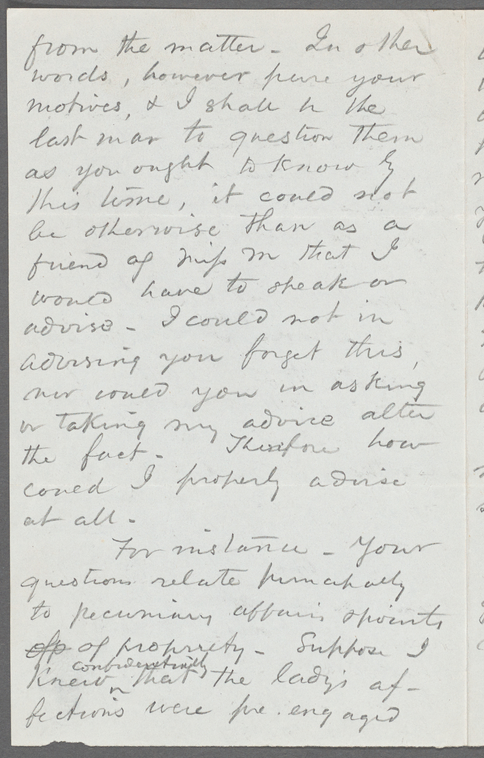 from the matter - In other
words, however pure your
motives, & I shall be the
last man to question them
as you ought to know by
this time, it could not
be otherwise than as a
friend of Miss M that I
would have to speak or
advise - I could not in
advising you forget this,
nor could you in asking
or taking my advice alter
the fact - Therefore how
could I properly advise
at all -
For instance - Your
questions relate principally
to pecuniary affairs & points
of propriety - Suppose I
knew confidentially that the lady's af-
fections were pre-engaged